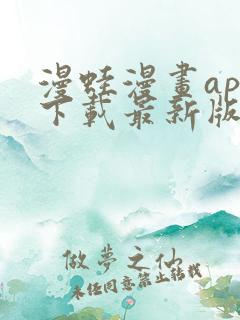 漫蛙漫畫ap
下載最新版
做夢之仙
未经同意禁止转载